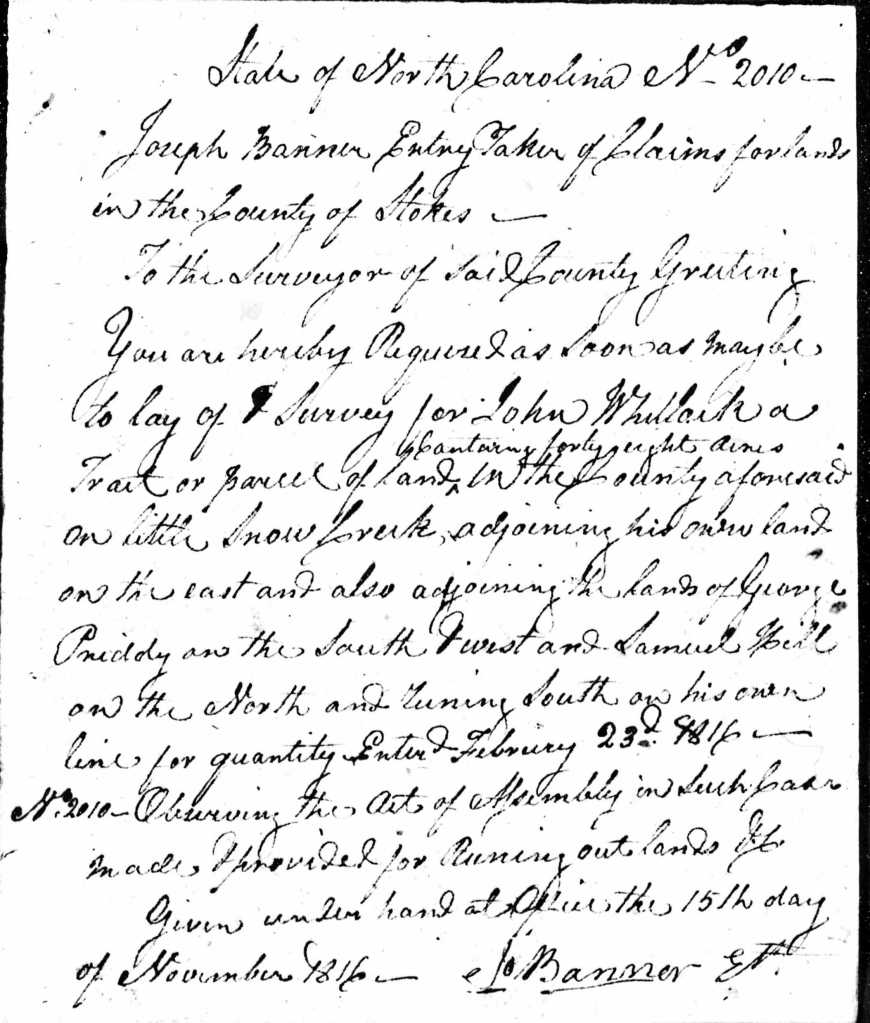 State of North Carolina No 2010 —
Joseph Banner Entry Taker of Claims for lands
in the County of Stokes —
To the Surveyor of said County Greeting
You are hereby Requered as soon as maybe
to lay of & Survey for John Whillock a
Containing forty eight Acres
Tract or parcel of land ^ in the County aforesaid
on little Snow Creek, adjoining his own land
on the east and also adjoining the lands of George
Priddy on the South & west and Samuel Hill
on the North and runing South on his own
line for quantity Enterd Februry 23d 1816 —
No 2010 — Observing the Act of Assembly in Such Case
made & provided for Runing out lands &c
Given under hand at Office the 15th day
of November 1816 — Jo Banner ET